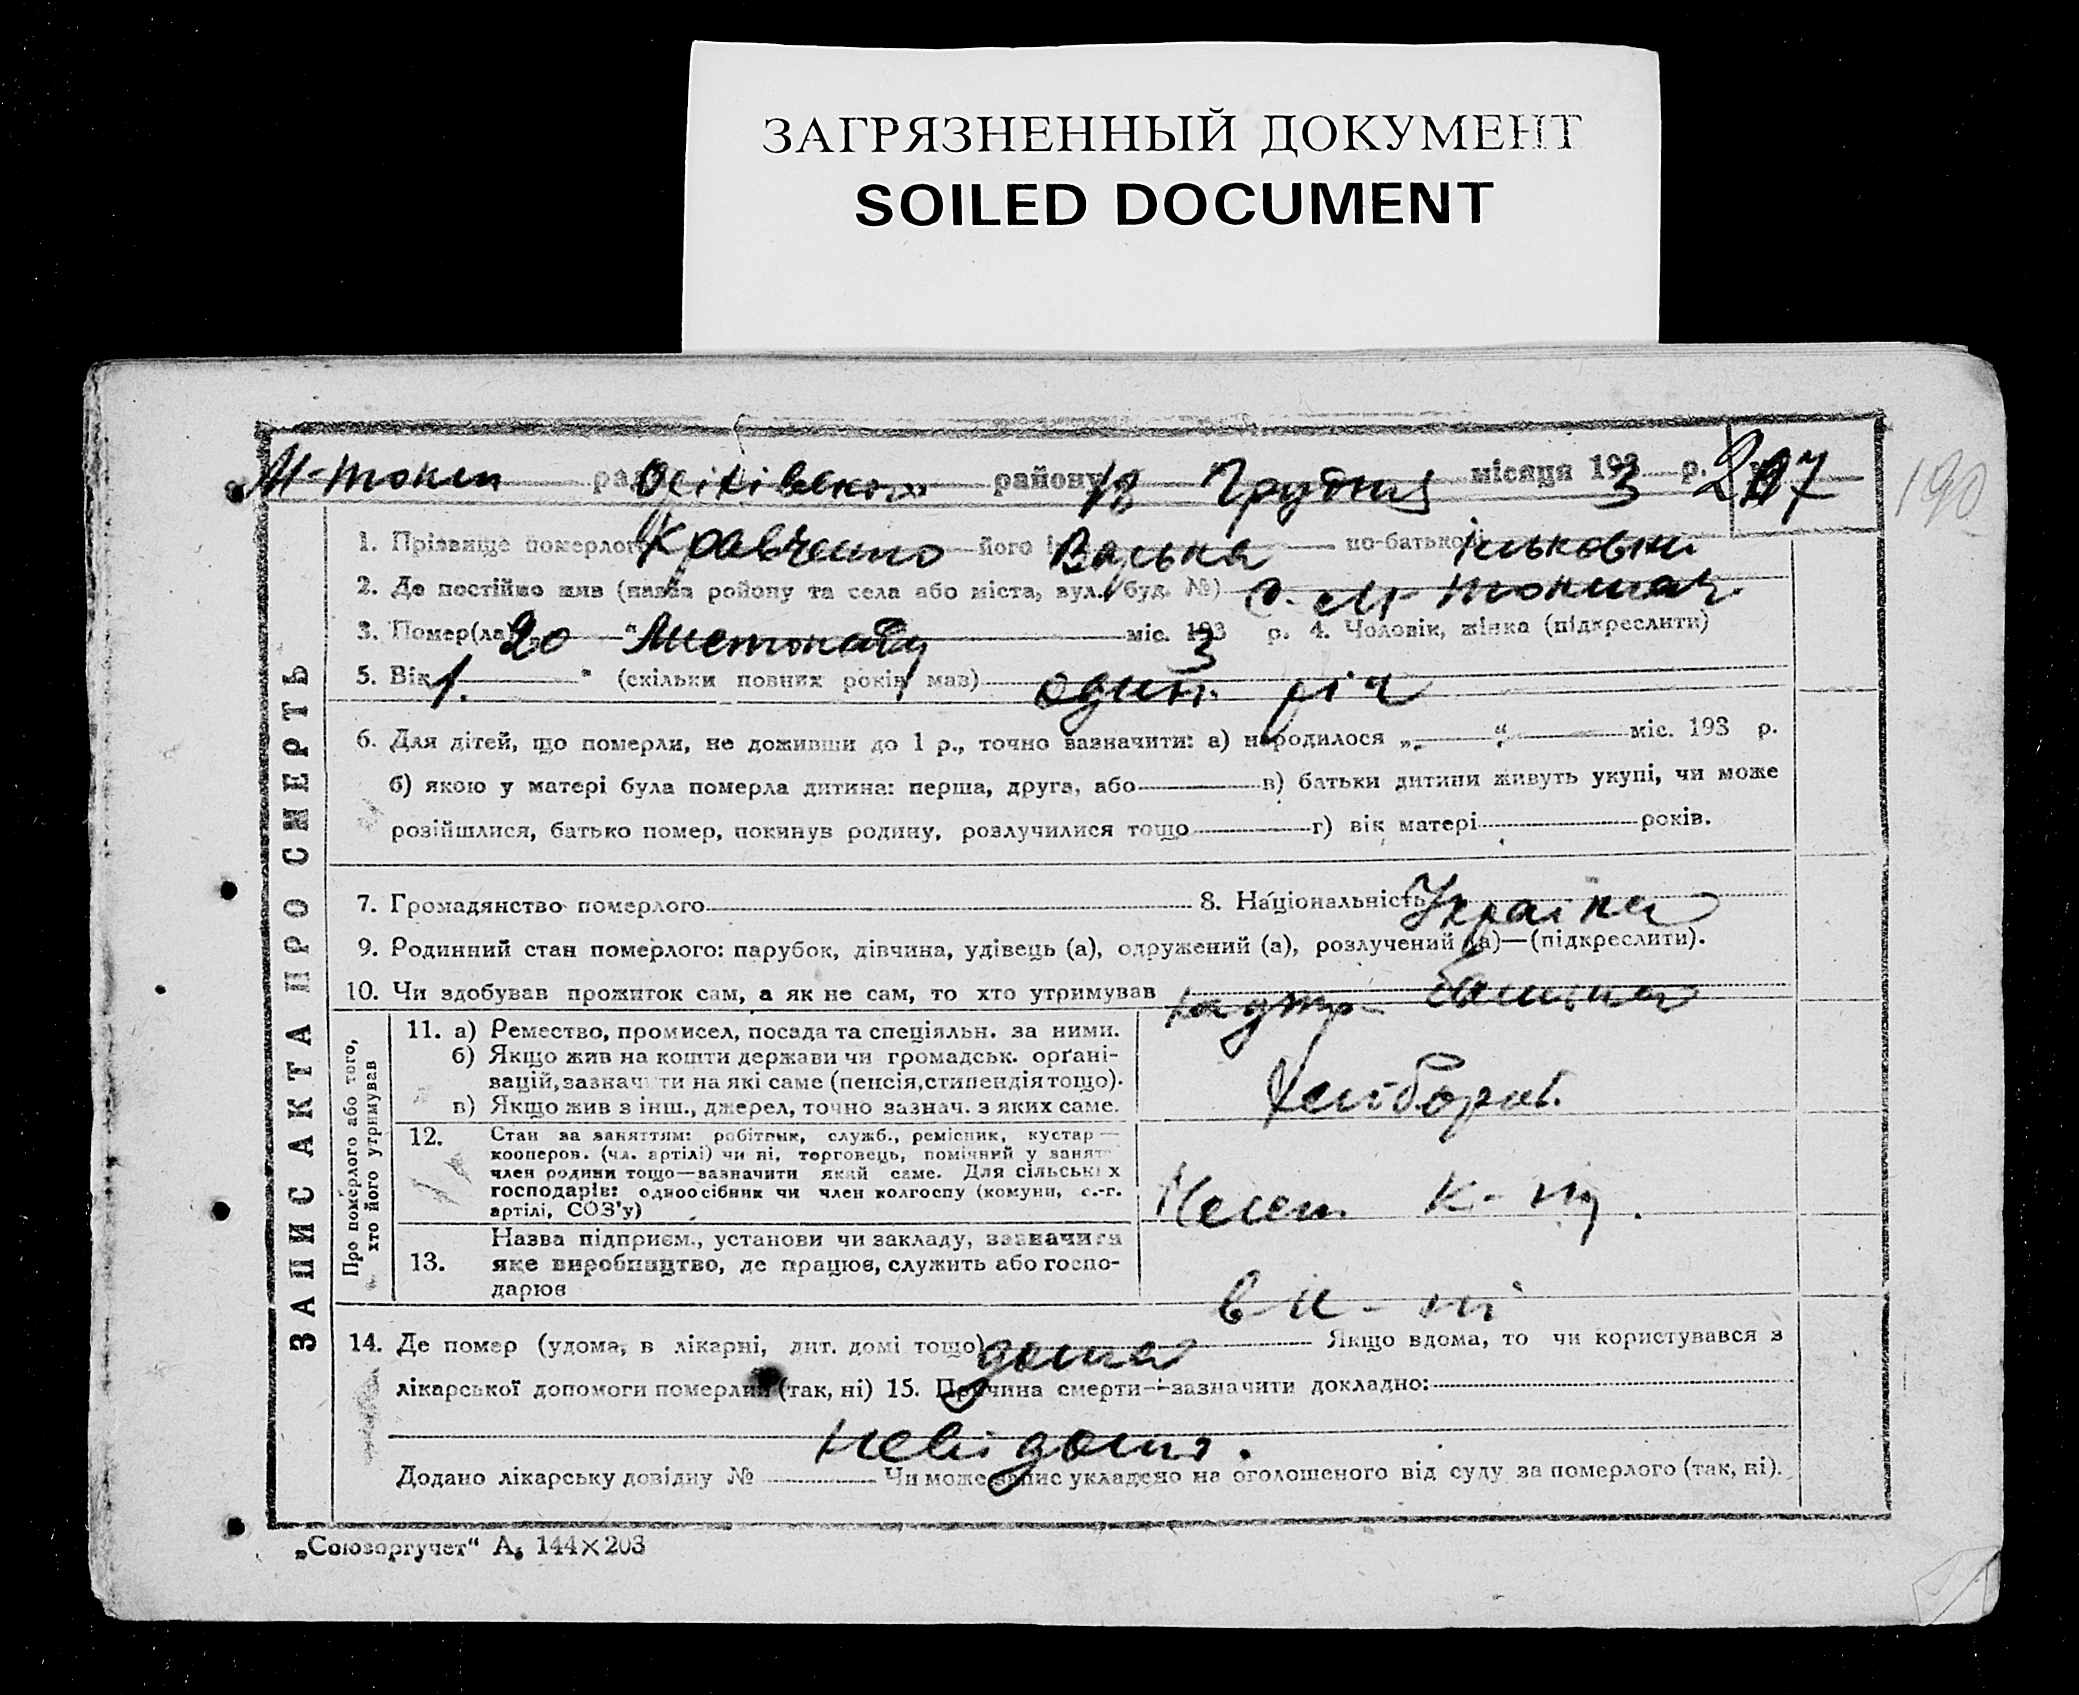 ЗАГРЯЗНЕННЫЙ ДОКУМЕНТ
SOILED DOCUMENT
М-Токм ра Оріхівського району 18 Грудня місяця 193 3 р. 207
190
1. Прізвище померлого Кравченко його і Варька по-батькові
2. Де постійно жив (назва району та села або міста, вул., буд. №) С. М-Токмач.
3. Помер(ла) 20 " Листопаду міс. 193 3 р. 4. Чоловік, жінка (підкреслити)
5. Вік 1. " (скільки повних років мав) один рік
6. Для дітей, що померли, не доживши до 1 р., точно вазначити: а) народилося „ “ міс. 193 р.
б) якою у матері була померла дитина: перша, друга, або в) батьки дитини живуть укупі, чи може
розійшлися, батько помер, покинув родину, розлучилися тощо г) вік матері років.
7. Громадянство померлого 8. Національність Українка
9. Родинний стан померлого: парубок, дівчина, удівець (а), одружений (а), розлучений (а)—(підкреслити).
10. Чи здобував прожиток сам, а як не сам, то хто утримував на утр. батька
ЗАПИС АКТА ПРО СМЕРТЬ
Про померлого або того, хто його утримував
11. а) Ремество, промисел, посада та спеціяльн. за ними.
б) Якщо жив на кошти держави чи громадськ. орґані-
вацій, зазначити на які саме (пенсія, стипендія тощо).
в) Якщо жив з інш., джерел, точно зазнач. з яких саме.
Хлібороб.
12. Стан за заняттям: робітник, служб., ремісник, кустар—
кооперов. (чл. артілі) чи ні, торговець, помічний у занят
член родини тощо—вазначити який саме. Для сільських
господарів: одноосібник чи член колгоспу (комуни, с.-г.
артілі, СОЗ'у)
Член к-пу.
13. Назва підприєм., установи чи закладу, зазначити
яке виробництво, де працює, служить або госпо-
дарює
в к-пі
14. Де помер (удома, в лікарні, дит. домі тощо) дома Якщо вдома, то чи користувався з
лікарської допомоги померлий (так, ні) 15. Причина смерти—зазначити докладно:
невідома.
Додано лікарську довідку № Чи може запис укладено на оголошеного від суду за померлого (так, ні).
„Союзоргучет“ А, 144×203